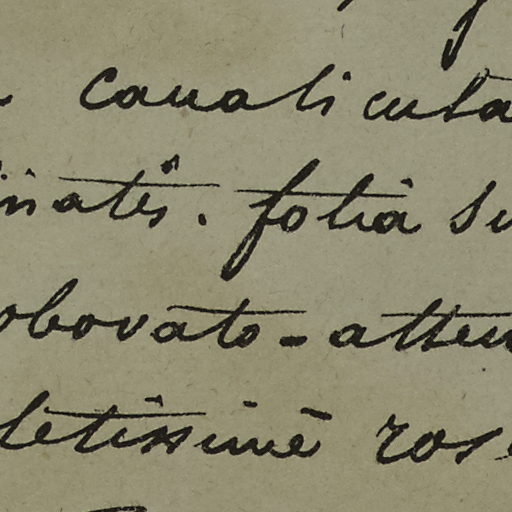 canalicula
inatis. folia su
obovato-atten
letissime ros